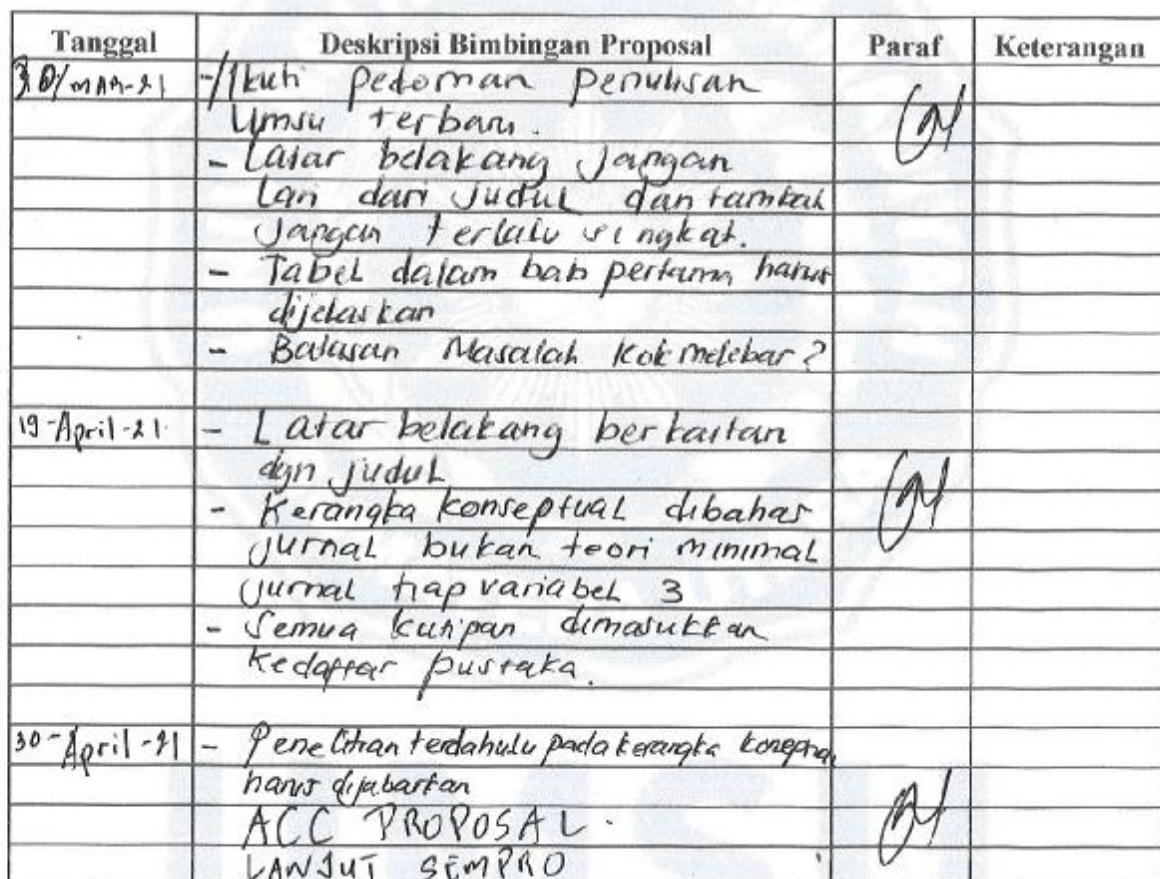 Tanggal Deskripsi Bimbingan Proposal Paraf Keterangan
30/MAR-21 - Ikuti pedoman penulisan
Umsu terbaru.
- Latar belakang jangan
Lari dari judul dan tambah
jangan terlalu singkat.
- Tabel dalam bab pertama harus
dijelaskan
- Batasan Masalah kok melebar?
19-April-21. - Latar belakang berkaitan
dgn judul
- Kerangka konseptual dibahas
jurnal bukan teori minimal
jurnal tiap variabel 3
- Semua kutipan dimasukkan
kedaftar pustaka.
30-April-21 - Penelitian terdahulu pada kerangka
harus dijabarkan
ACC PROPOSAL.
LANJUT SEMPRO